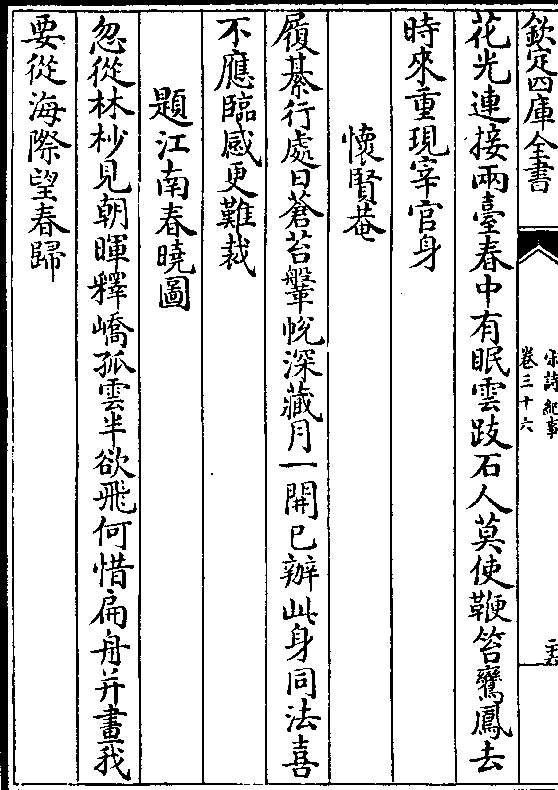 欽定四庫全書
宋詩紀事
卷三十六
花光連接兩臺春中有眠雲跂石人莫使鞭笞鸞鳳去
時來重現宰官身
懷賢菴
履綦行處日蒼苔鞶帨深藏月一開已辦此身同法喜
不應臨感更難裁
題江南春曉圖
忽從林杪見朝暉釋嶠孤雲半欲飛何惜扁舟并畫我
要從海際望春歸